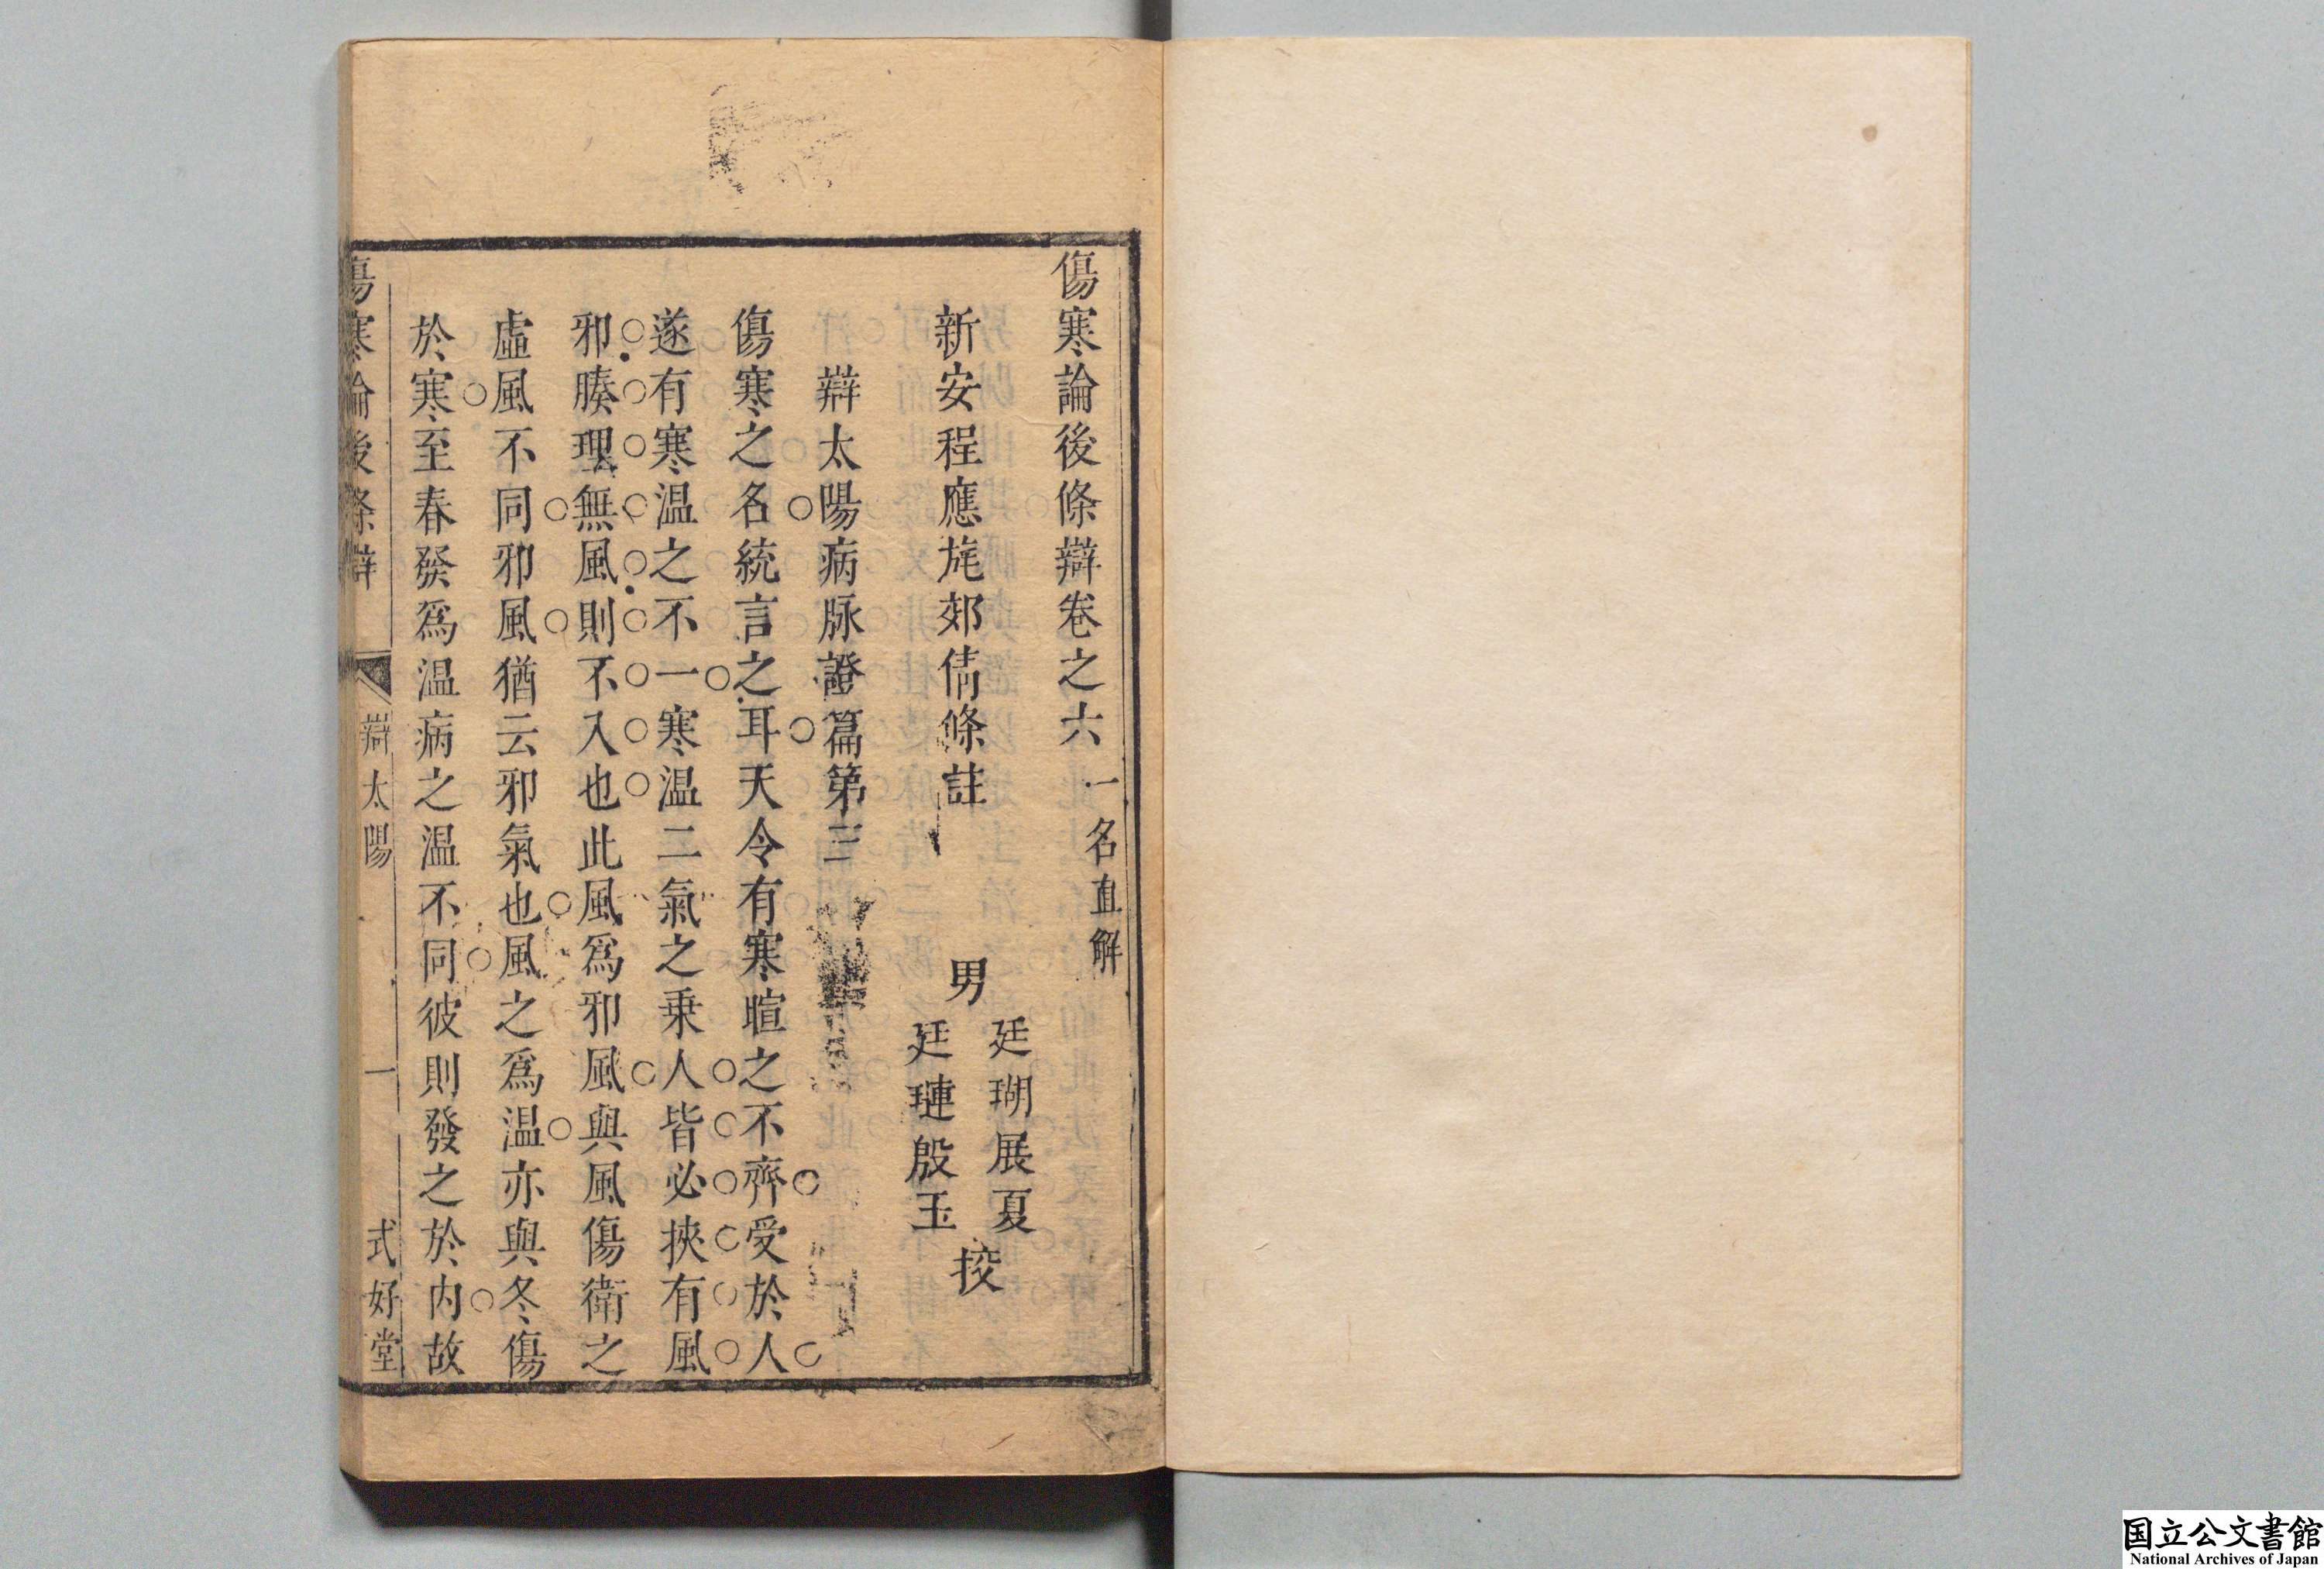 傷寒論後條辯卷之六 一名直解
新安程應旄郊倩條註 男 廷瑚展夏 廷璉殷玉 挍
辯太陽病脉證篇第三
傷寒之名統言之耳天令有寒暄之不齊受於人
遂有寒温之不一寒温二氣之乗人皆必挾有風
邪腠理無風則不入也此風爲邪風與風傷衛之
虛風不同邪風猶云邪氣也風之爲温亦與冬傷
於寒至春發爲温病之温不同彼則發之於内故
傷寒論後條辯 辯太陽 一 式好堂
国立公文書館
National Archives of Japan